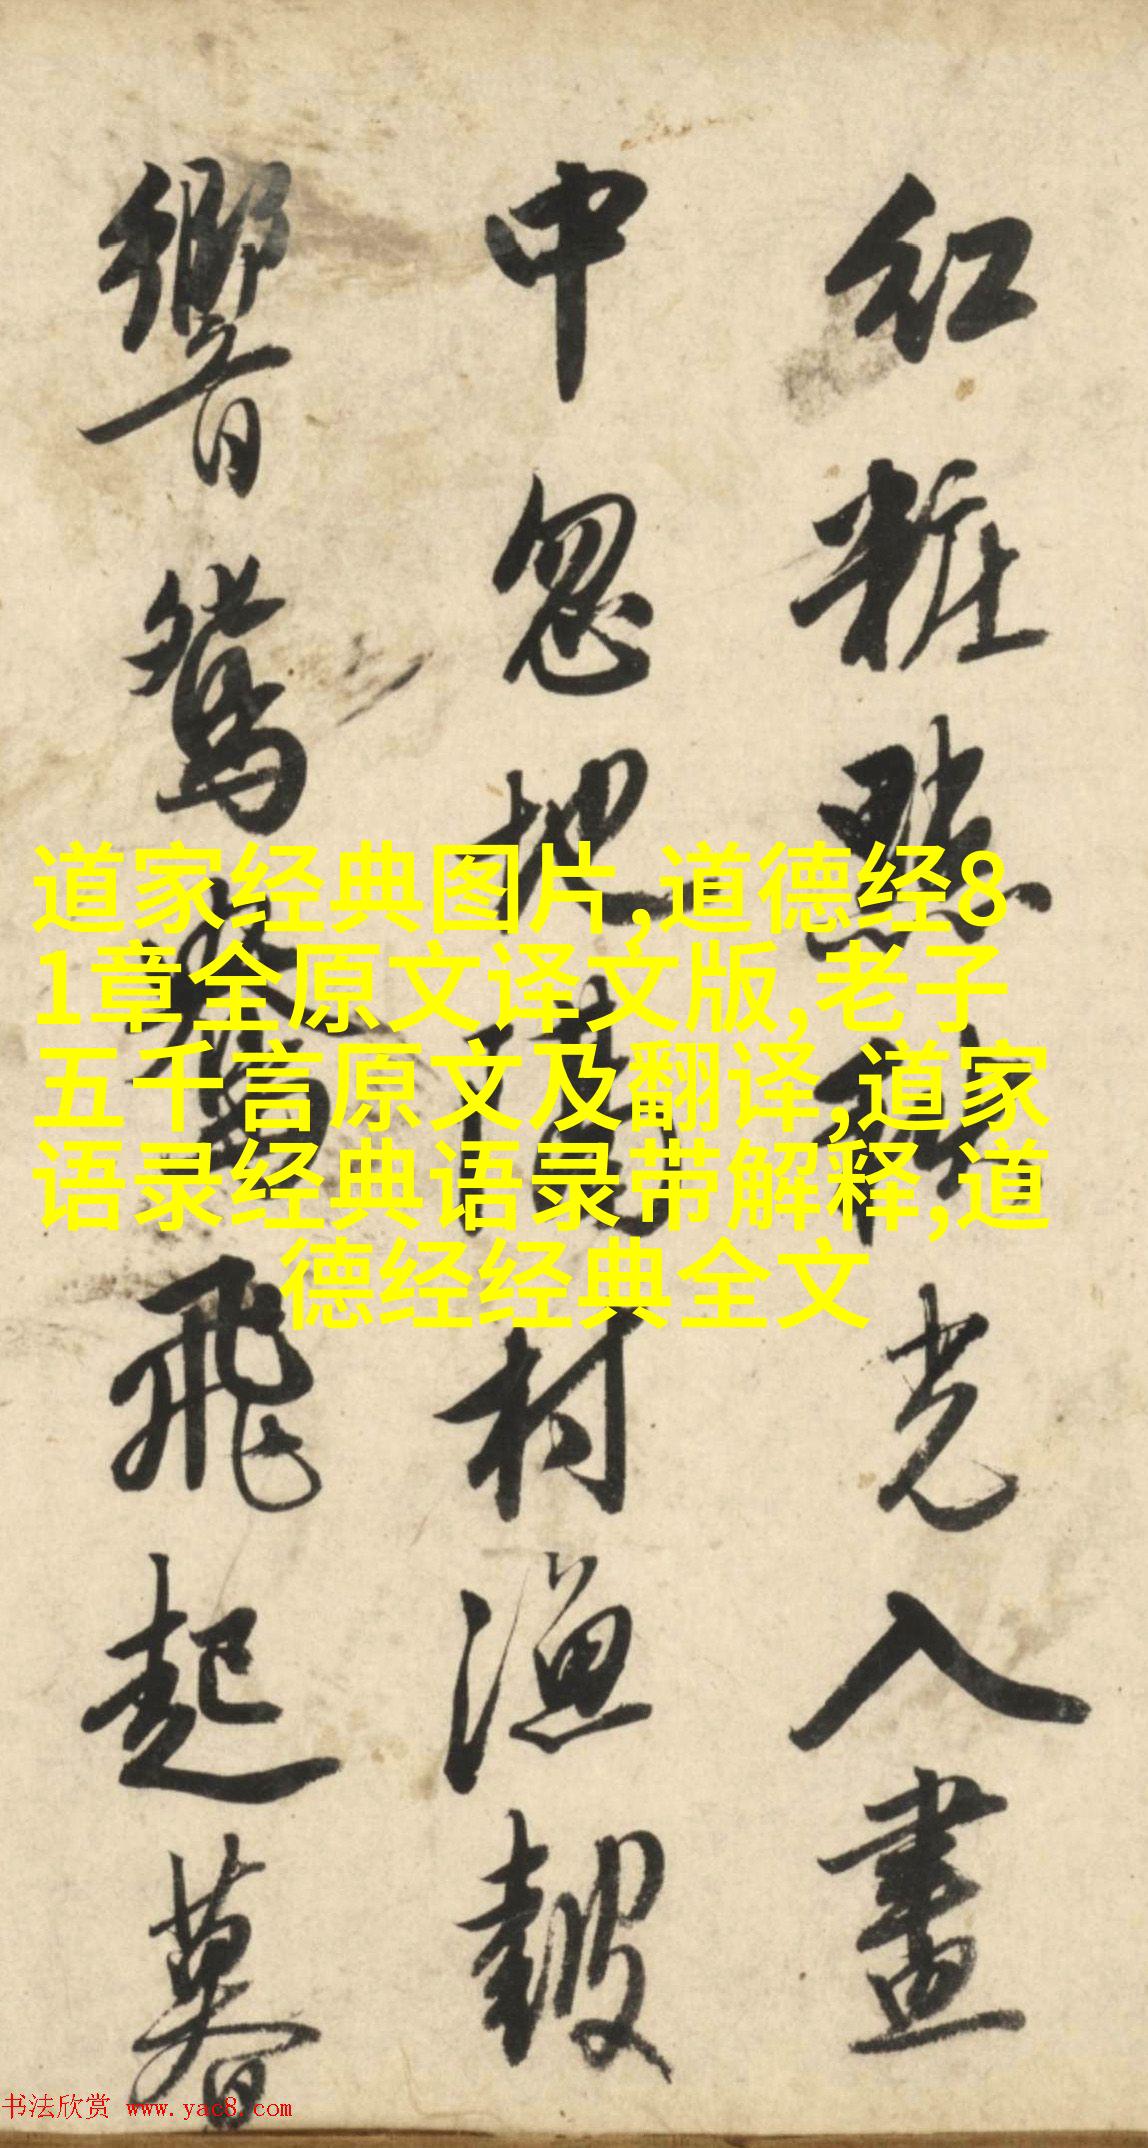 紅粧點秋光入畫
中忽把村漁皷
響鴛鴦飛起暮
道家经典图片,道德经8
1章全原文译文版,老子
五千言原文及翻译,道家
语录经典语录带解释,道
德经经典全文
书法欣赏 www.yac8.com